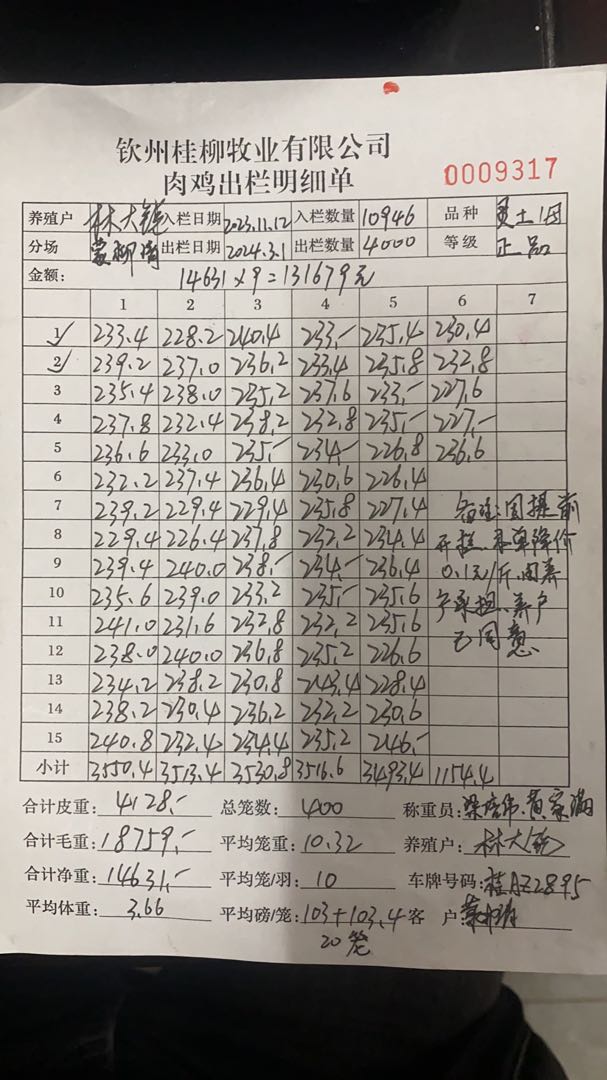 钦州桂柳牧业有限公司
肉鸡出栏明细单
0009317
养殖户 林大锐 入栏日期 2023.11.12 入栏数量 10946 品种 灵土1母
分场 出栏日期 2024.3.1 出栏数量 4000 等级 正品
金额: 14631×9=131679元
1 2 3 4 5 6 7
1 233.4 228.2 240.4 233.- 235.4 230.4
2 239.2 237.0 236.2 233.4 235.8 232.8
3 235.4 238.0 235.2 237.6 233.- 227.6
4 237.8 232.4 238.2 232.8 235.- 227.-
5 236.6 233.0 235.- 234.- 226.8 236.6
6 232.2 237.4 236.4 230.6 226.4
7 239.2 229.4 229.4 235.8 227.4 备注:因提前
8 229.4 226.4 237.8 232.2 234.4 开栏.单降价
9 239.4 240.0 238.- 234.- 236.4 0.1元/斤.由养
10 235.6 239.0 233.2 235.- 235.6 户承担.养户
11 241.0 231.6 232.8 232.2 235.6 已同意
12 238.0 240.0 236.8 235.2 226.6
13 234.2 238.2 230.8 243.4 228.4
14 238.2 230.4 236.2 232.2 230.6
15 240.8 232.4 234.4 235.2 246.-
小计 3550.4 3513.4 3530.8 3516.6 3493.4 1154.4
合计皮重: 4128.- 总笼数: 400 称重员: 黄家满
合计毛重: 18759.- 平均笼重: 10.32 养殖户: 林大锐
合计净重: 14631.- 平均笼/羽: 10 车牌号码: 桂AZ2895
平均体重: 3.66 平均磅/笼: 103+103.4 客 户:
20笼